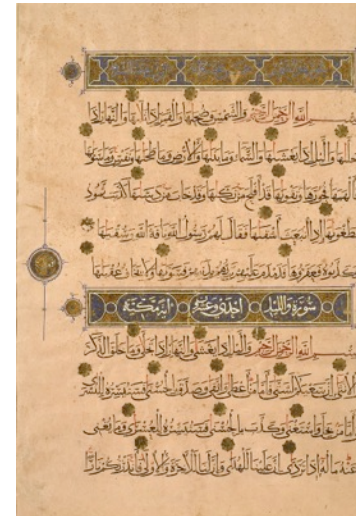 بسم الله الرحمن الرحيم والشمس وضحيها والقمر اذا تليها والنهار اذا
جليها والليل اذا يغشيها والسماء وما بنيها والارض وما طحيها ونفس وما سويها
فالهمها فجورها وتقويها قد افلح من زكيها وقد خاب من دسيها كذبت ثمود
بطغويها اذ انبعث اشقيها فقال لهم رسول الله ناقة الله وسقيها
فكذبوه فعقروها فدمدم عليهم ربهم بذنبهم فسويها ولا يخاف عقبيها
سورة والليل احدى وعشرون اية مكية
بسم الله الرحمن الرحيم والليل اذا يغشى والنهار اذا تجلى وما خلق الذكر
والانثى ان سعيكم لشتى فاما من اعطى واتقى وصدق بالحسنى فسنيسره لليسرى
واما من بخل واستغنى وكذب بالحسنى فسنيسره للعسرى وما يغنى
عنه ماله اذا تردى ان علينا للهدى وان لنا للاخرة والاولى فانذرتكم نارا